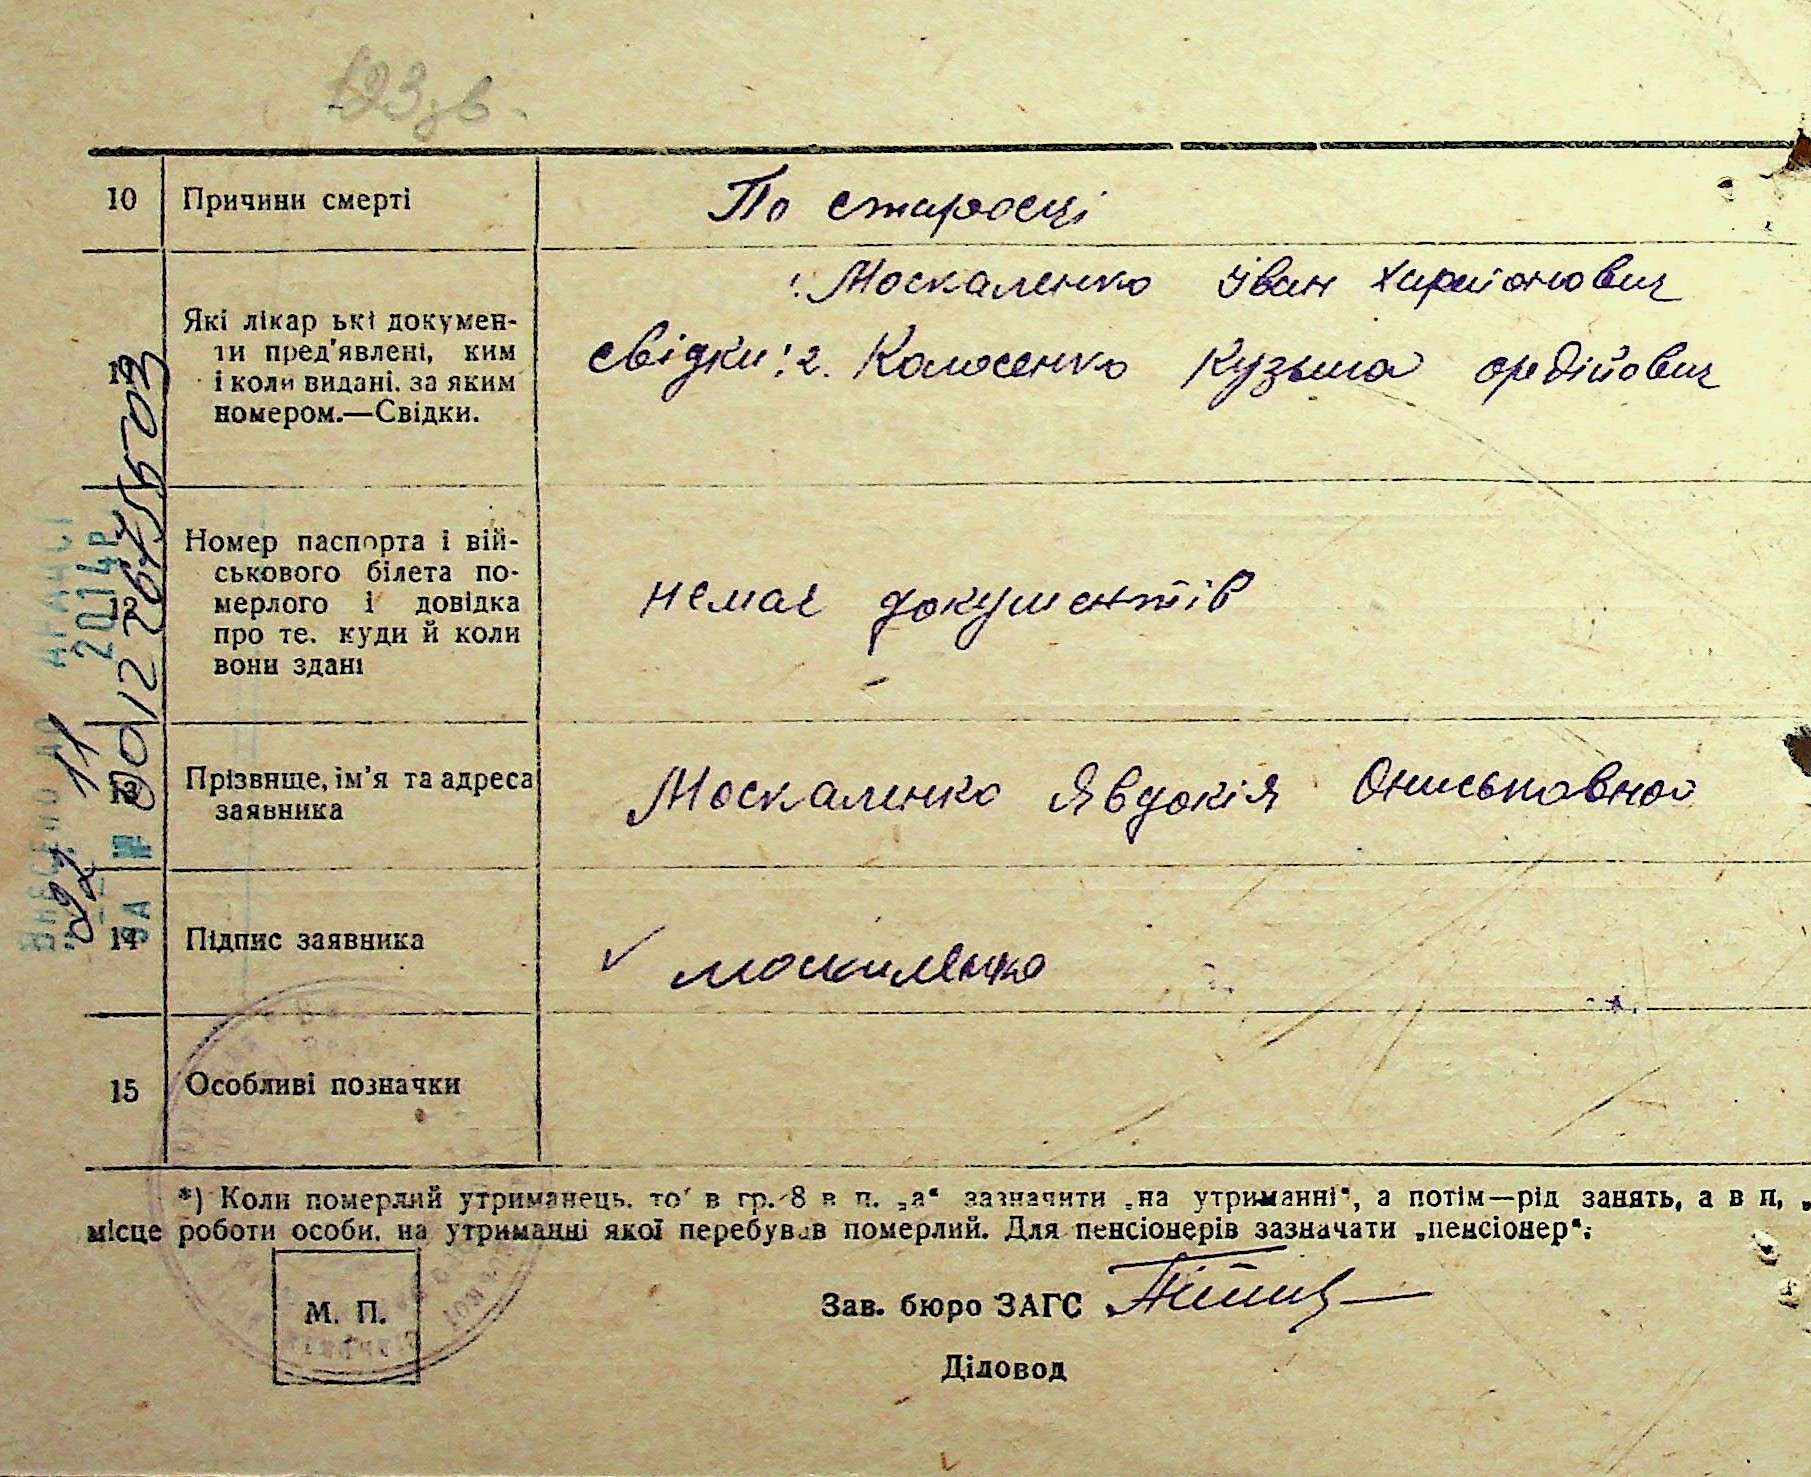 193 зв.
10 Причини смерті По старосці
1. Москаленко Іван Харитонович
11 Які лікар ькі докумен-
ти пред'явлені, ким
і коли видані. за яким
номером.—Свідки.
свідки: 2. Колосенко Кузьма
12 Номер паспорта і вій-
ськового білета по-
мерлого і довідка
про те. куди й коли
вони здані
немає документів
13 Прізвище, ім'я та адреса
заявника
Москаленко Явдокія Ониськовна
14 Підпис заявника ✓ москаленко
15 Особливі позначки
*) Коли померлий утриманець. то в гр. 8 в п. „а“ зазначити „на утриманні“, а потім—рід занять, а в п. „
місце роботи особи. на утриманні якої перебував померлий. Для пенсіонерів зазначати „пенсіонер“.
М. П.
Зав. бюро ЗАГС
Діловод
Внесено до ДРАЦСГ
22 11 2014р
за №